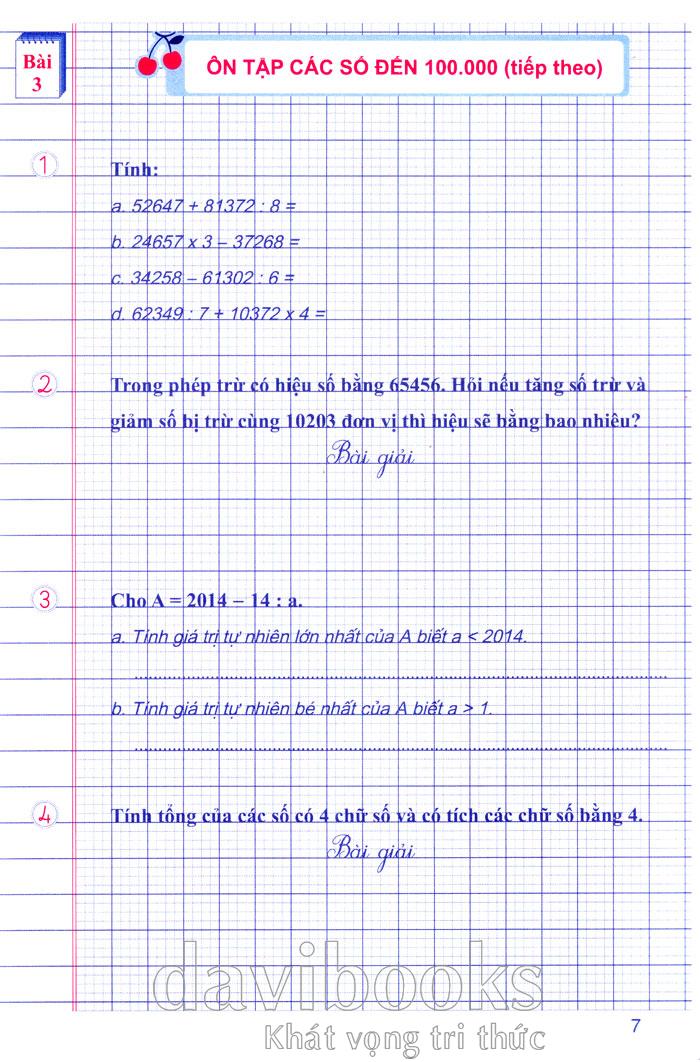 Bài
3
ÔN TẬP CÁC SỐ ĐẾN 100.000 (tiếp theo)
1
Tính:
a. 52647 + 81372 : 8 =
b. 24657 x 3 – 37268 =
c. 34258 – 61302 : 6 =
d. 62349 : 7 + 10372 x 4 =
2
Trong phép trừ có hiệu số bằng 65456. Hỏi nếu tăng số trừ và
giảm số bị trừ cùng 10203 đơn vị thì hiệu sẽ bằng bao nhiêu?
Bài giải
3
Cho A = 2014 – 14 : a.
a. Tính giá trị tự nhiên lớn nhất của A biết a < 2014.
b. Tính giá trị tự nhiên bé nhất của A biết a > 1.
4
Tính tổng của các số có 4 chữ số và có tích các chữ số bằng 4.
Bài giải
davibooks
Khát vọng tri thức
7